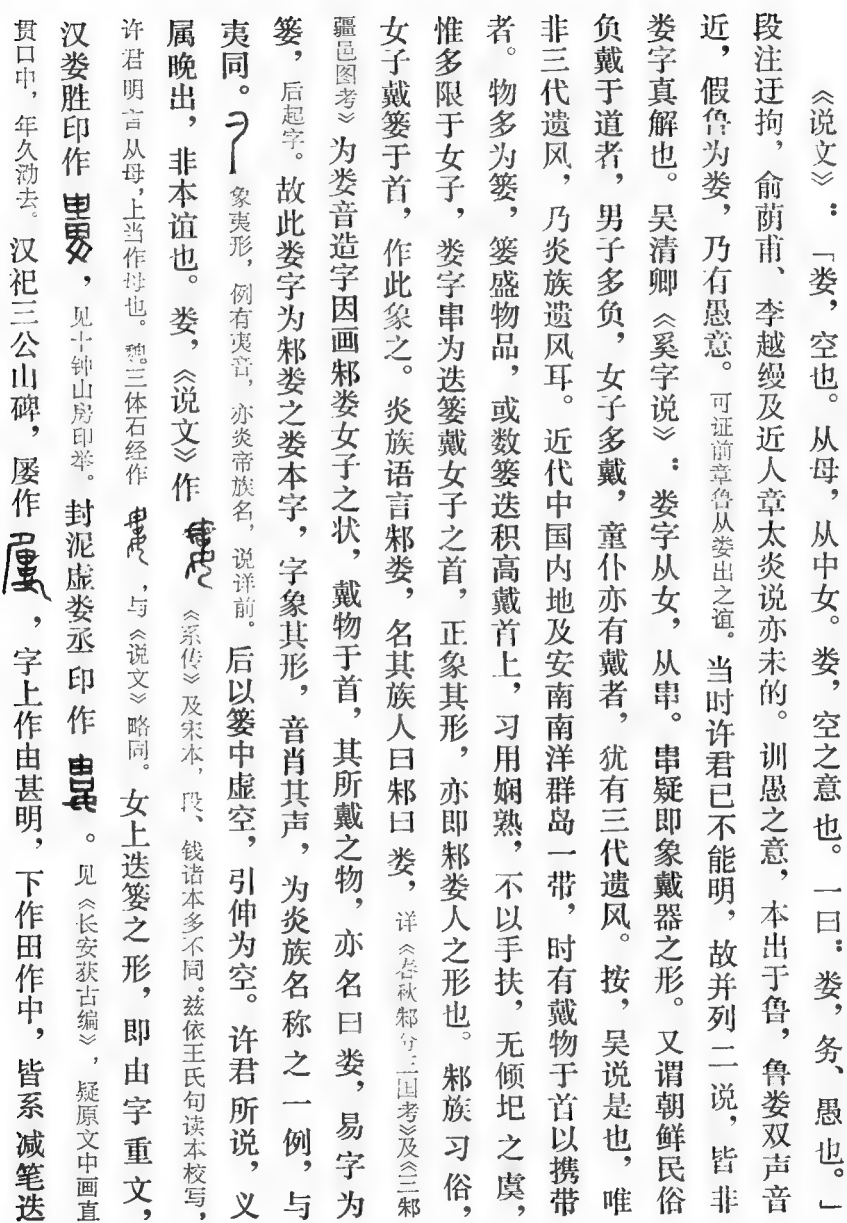 《说文》：「娄，空也。从母，从中女。娄，空之意也。一曰：娄，务、愚也。」
段注迂拘，俞荫甫、李越缦及近人章太炎说亦未的。训愚之意，本出于鲁，鲁娄双声音
近，假鲁为娄，乃有愚意。可证前章鲁从娄出之谊。当时许君已不能明，故并列二说，皆非
娄字真解也。吴清卿《奚字说》：娄字从女，从串。串疑即象戴器之形。又谓朝鲜民俗
负戴于道者，男子多负，女子多戴，童仆亦有戴者，犹有三代遗风。按，吴说是也，唯
非三代遗风，乃炎族遗风耳。近代中国内地及安南南洋群岛一带，时有戴物于首以携带
者。物多为篓，篓盛物品，或数篓迭积高戴首上，习用娴熟，不以手扶，无倾圯之虞，
惟多限于女子，娄字串为迭篓戴女子之首，正象其形，亦即邾娄人之形也。邾族习俗，
女子戴篓于首，作此象之。炎族语言邾娄，名其族人曰邾曰娄，详《春秋邾分三国考》及《三邾
疆邑图考》为娄音造字因画邾娄女子之状，戴物于首，其所戴之物，亦名曰娄，易字为
篓，后起字。故此娄字为邾娄之娄本字，字象其形，音肖其声，为炎族名称之一例，与
夷同。象夷形，例有夷音，亦炎帝族名，说详前。后以篓中虚空，引伸为空。许君所说，义
属晚出，非本谊也。娄，《说文》作《系传》及宋本，段、钱诸本多不同。兹依王氏句读本校写，
许君明言从母，上当作母也。魏三体石经作，与《说文》略同。女上迭篓之形，即由字重文，
汉娄胜印作，见十钟山房印举。封泥虚娄丞印作。见《长安获古编》，疑原文中画直
贯口中，年久泐去。汉祀三公山碑，屡作，字上作由甚明，下作田作中，皆系减笔迭